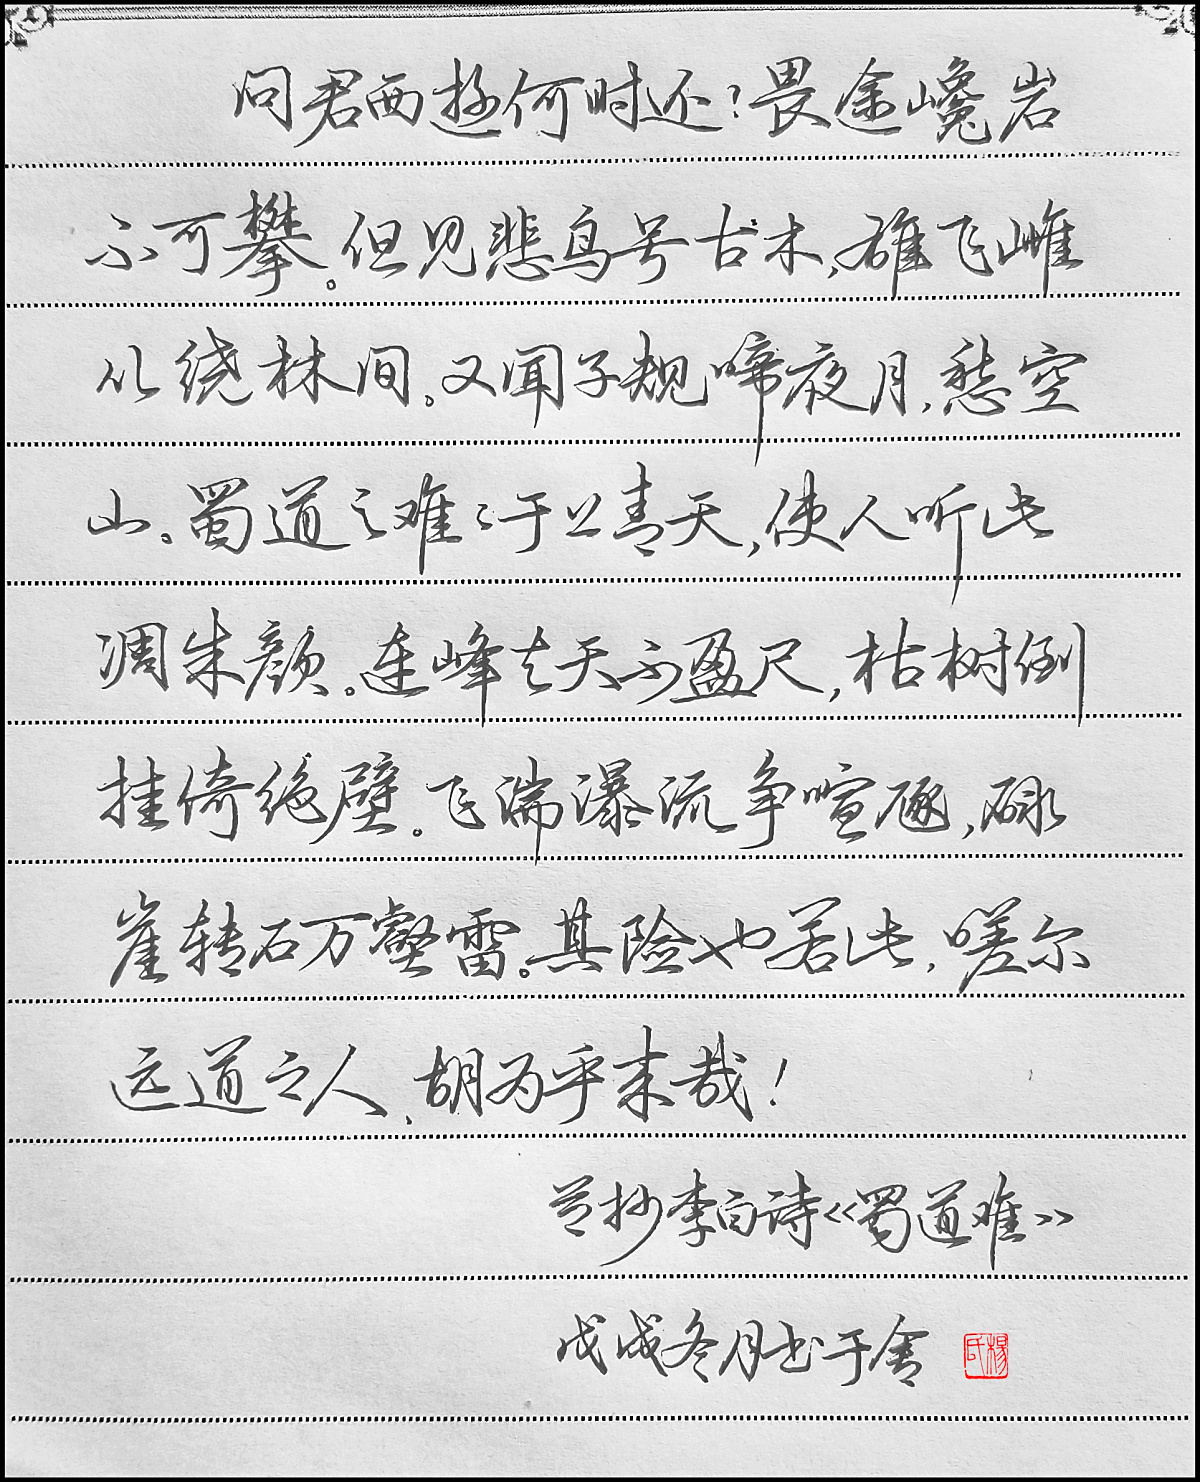 问君西游何时还？畏途巉岩
不可攀。但见悲鸟号古木，雄飞雌
从绕林间。又闻子规啼夜月，愁空
山。蜀道之难难于上青天，使人听此
凋朱颜。连峰去天不盈尺，枯树倒
挂倚绝壁。飞湍瀑流争喧豗，砯
崖转石万壑雷。其险也若此，嗟尔
远道之人，胡为乎来哉！
节抄李白诗《蜀道难》
戊戌冬月书于舍
杨氏